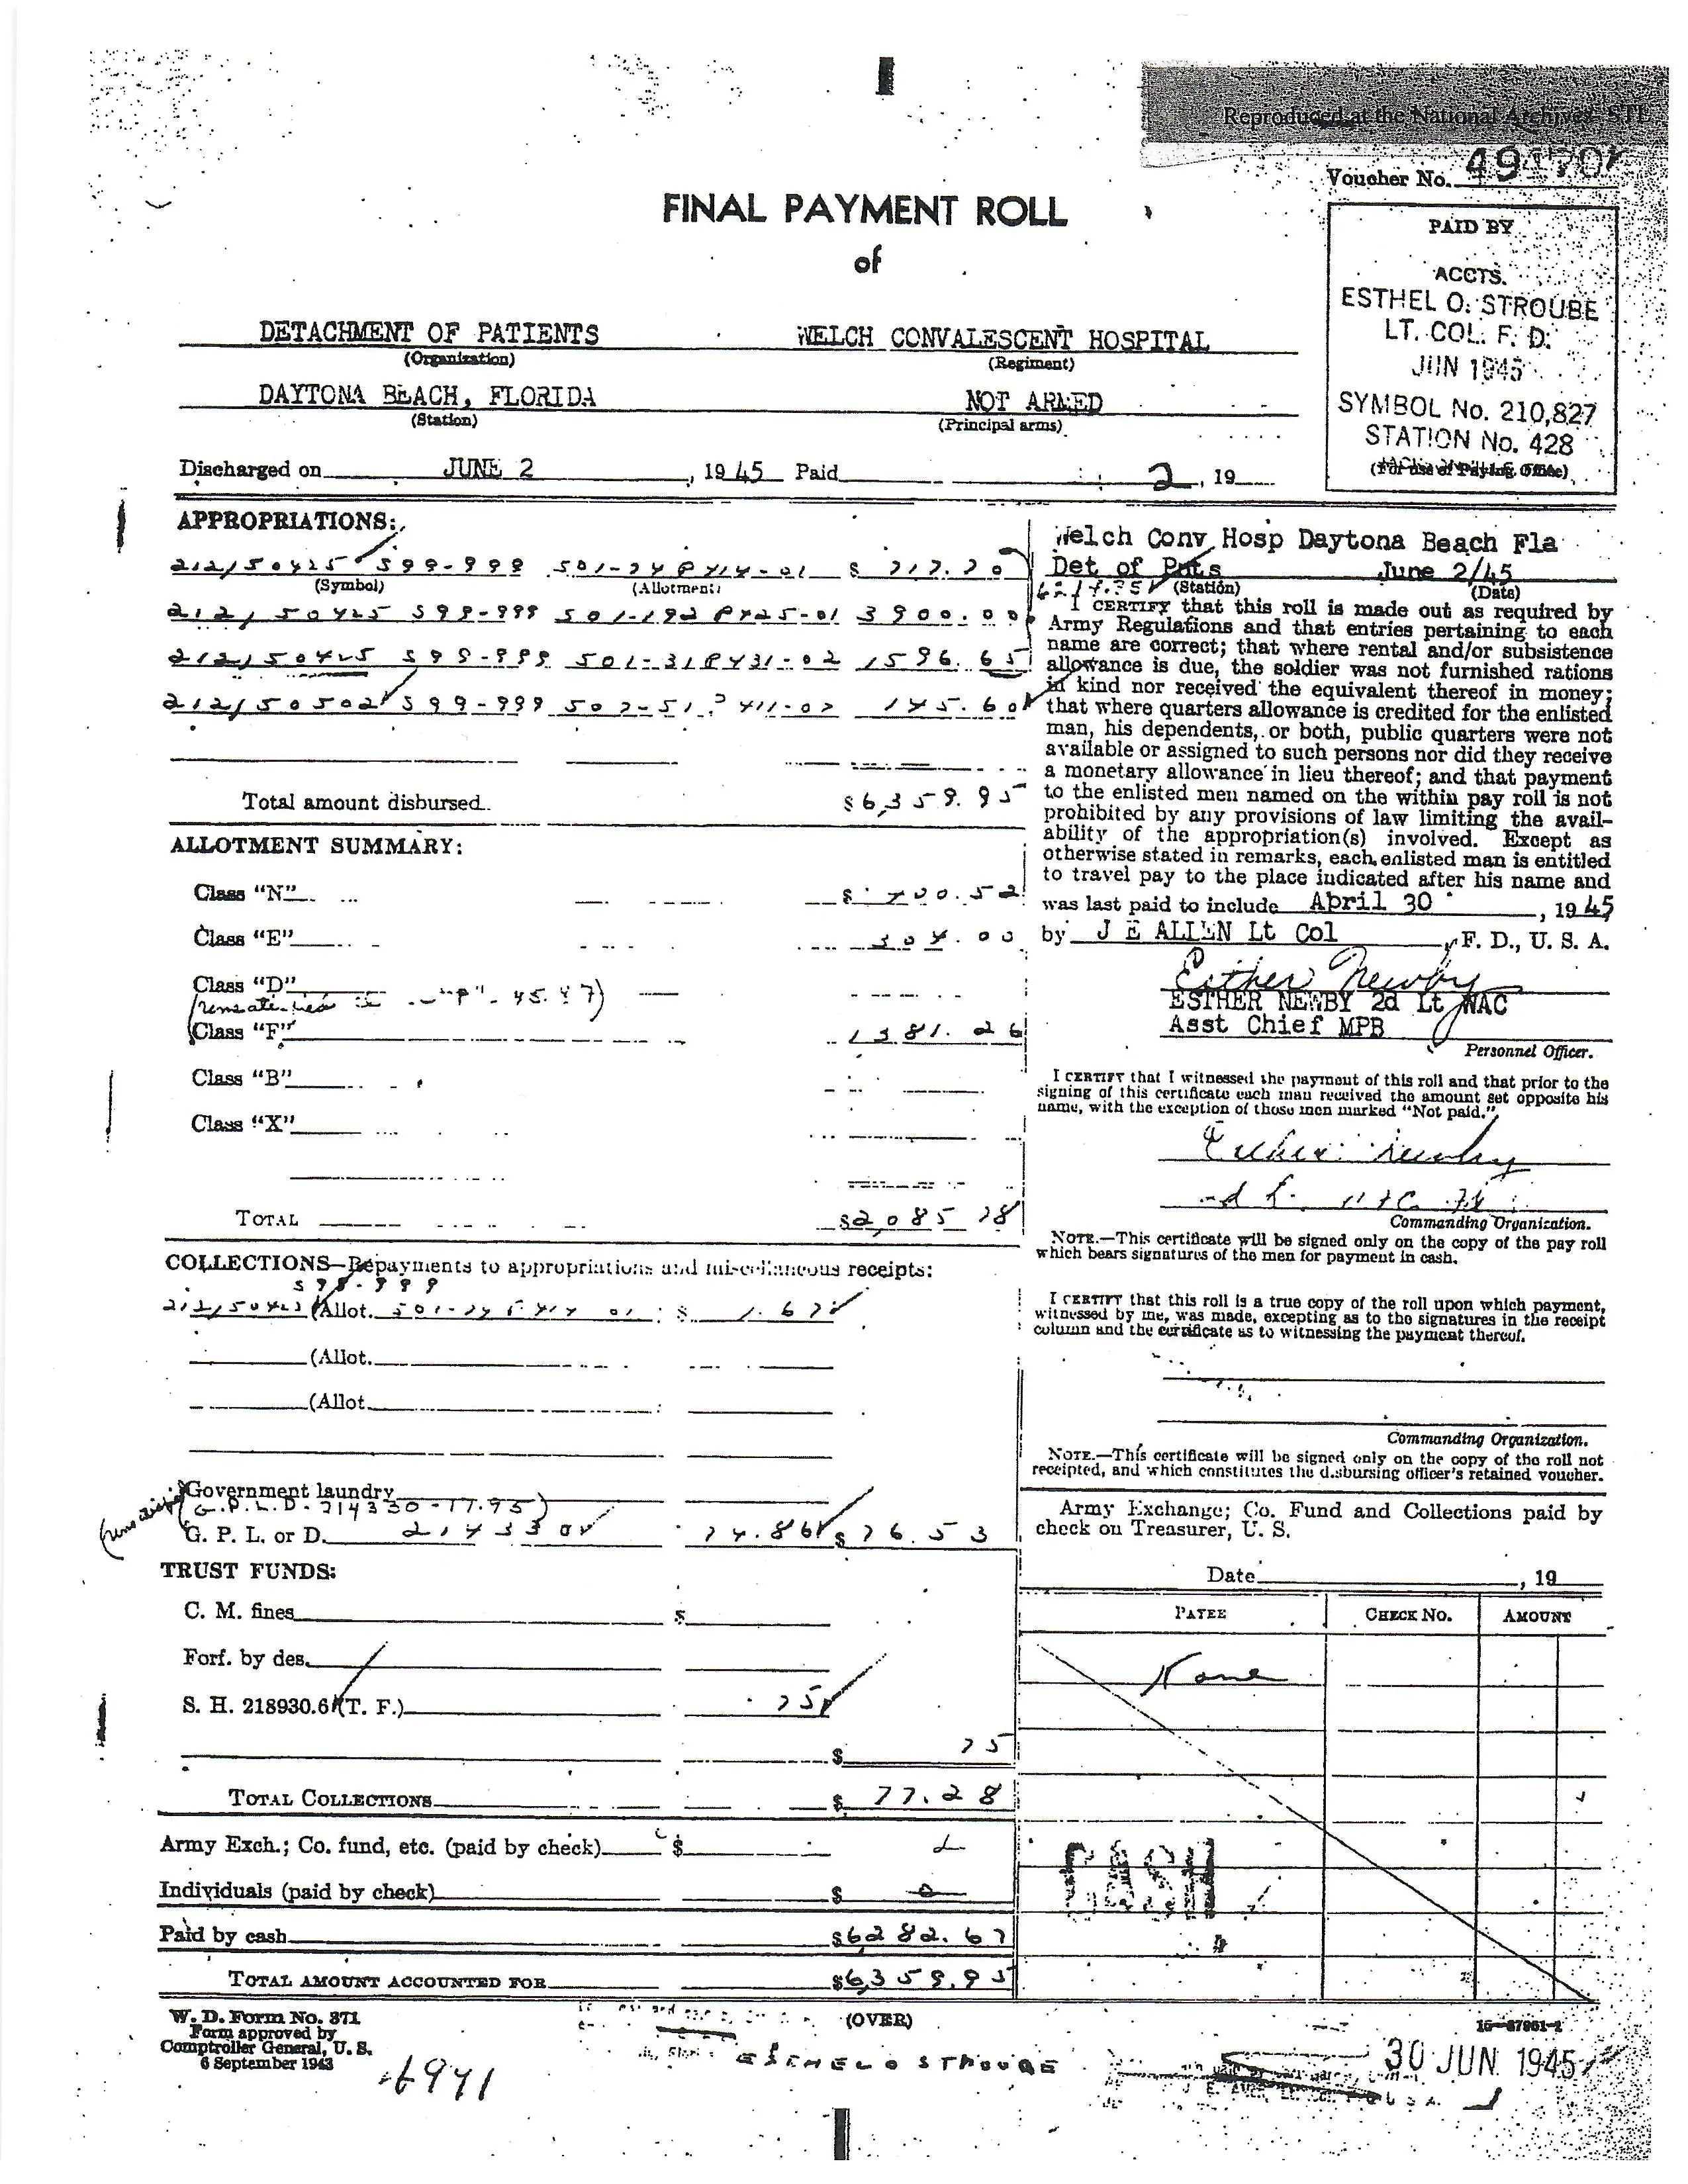 Reproduced at the National Archives STL
Voucher No.
FINAL PAYMENT ROLL
of
PAID BY
ACCTS.
ESTHEL O. STROUBE
LT. COL. F. D.
JUN 1945
SYMBOL No. 210,827
STATION No. 428
(For use of Paying Office)
DETACHMENT OF PATIENTS WELCH CONVALESCENT HOSPITAL
(Organization) (Regiment)
DAYTONA BEACH, FLORIDA NOT ARMED
(Station) (Principal arms)
Discharged on JUNE 2, 1945 Paid 2, 19
APPROPRIATIONS:
212/50425 599-999 501-24 P414-01 $ 717.70
(Symbol) (Allotment)
212/50425 599-999 501-192 P425-01 3900.00
212/50425 599-999 501-31 P431-02 1596.65
212/50502 599-999 507-51 P411-07 145.60
Total amount disbursed $6,359.95
ALLOTMENT SUMMARY:
Class "N" $ 400.52
Class "E" 304.00
Class "D"
"P" - 45.47)
Class "F" 1381.26
Class "B"
Class "X"
TOTAL $2,085.78
COLLECTIONS—Repayments to appropriations and miscellaneous receipts:
599-999
212/50425 (Allot. 501-24 P414 01 $ 1.67
(Allot.
(Allot.
Government laundry
G.P.L.D. - 214330 - 17.95)
G. P. L. or D. 214330 74.86 $ 76.53
TRUST FUNDS:
C. M. fines $
Forf. by des.
S. H. 218930.6 (T. F.) .75
$ 75
TOTAL COLLECTIONS $ 77.28
Army Exch.; Co. fund, etc. (paid by check) $
Individuals (paid by check) $ 0
Paid by cash $6282.67
TOTAL AMOUNT ACCOUNTED FOR $6,359.95
W. D. Form No. 371
Form approved by
Comptroller General, U. S.
6 September 1943
(OVER)
ESTHEL O STROUBE
Welch Conv Hosp Daytona Beach Fla
Det of Pats June 2/45
6214.35 (Station) (Date)
I CERTIFY that this roll is made out as required by
Army Regulations and that entries pertaining to each
name are correct; that where rental and/or subsistence
allowance is due, the soldier was not furnished rations
in kind nor received the equivalent thereof in money;
that where quarters allowance is credited for the enlisted
man, his dependents, or both, public quarters were not
available or assigned to such persons nor did they receive
a monetary allowance in lieu thereof; and that payment
to the enlisted men named on the within pay roll is not
prohibited by any provisions of law limiting the avail-
ability of the appropriation(s) involved. Except as
otherwise stated in remarks, each enlisted man is entitled
to travel pay to the place indicated after his name and
was last paid to include April 30, 1945
by J E ALLEN Lt Col, F. D., U. S. A.
Esther Newby
ESTHER NEWBY 2d Lt WAC
Asst Chief MPB
Personnel Officer.
I CERTIFY that I witnessed the payment of this roll and that prior to the
signing of this certificate each man received the amount set opposite his
name, with the exception of those men marked "Not paid."
Esther Newby
Commanding Organization.
NOTE.—This certificate will be signed only on the copy of the pay roll
which bears signatures of the men for payment in cash.
I CERTIFY that this roll is a true copy of the roll upon which payment,
witnessed by me, was made, excepting as to the signatures in the receipt
column and the certificate as to witnessing the payment thereof.
Commanding Organization.
NOTE.—This certificate will be signed only on the copy of the roll not
receipted, and which constitutes the disbursing officer's retained voucher.
Army Exchange; Co. Fund and Collections paid by
check on Treasurer, U. S.
Date , 19
PAYEE CHECK No. AMOUNT
None
CASH
16—37961-1
30 JUN 1945